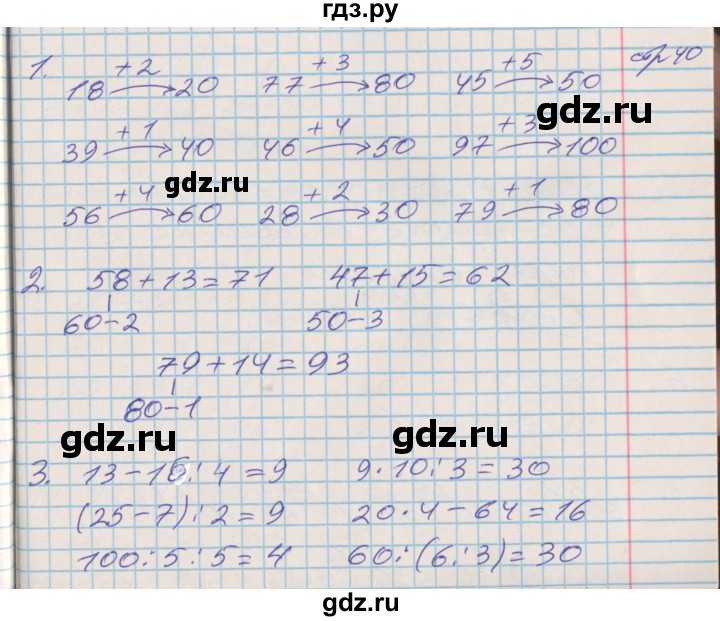 гдз.ру
стр 40
1. 18 +2→ 20 77 +3→ 80 45 +5→ 50
gdz.ru
39 +1→ 40 46 +4→ 50 97 +3→ 100
gdz.ru
56 +4→ 60 28 +2→ 30 79 +1→ 80
2. 58+13=71 47+15=62
60-2 50-3
79+14=93
80-1
gdz.ru gdz.ru
3. 13-16:4=9 9·10:3=30
(25-7):2=9 20·4-64=16
100:5:5=4 60:(6:3)=30
gdz.ru